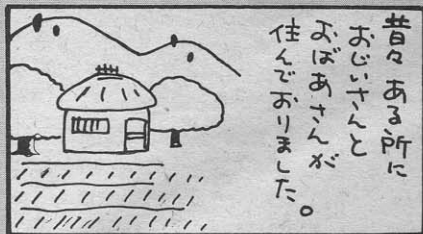 昔々 ある所に
おじいさんと
おばあさんが
住んでおりました。